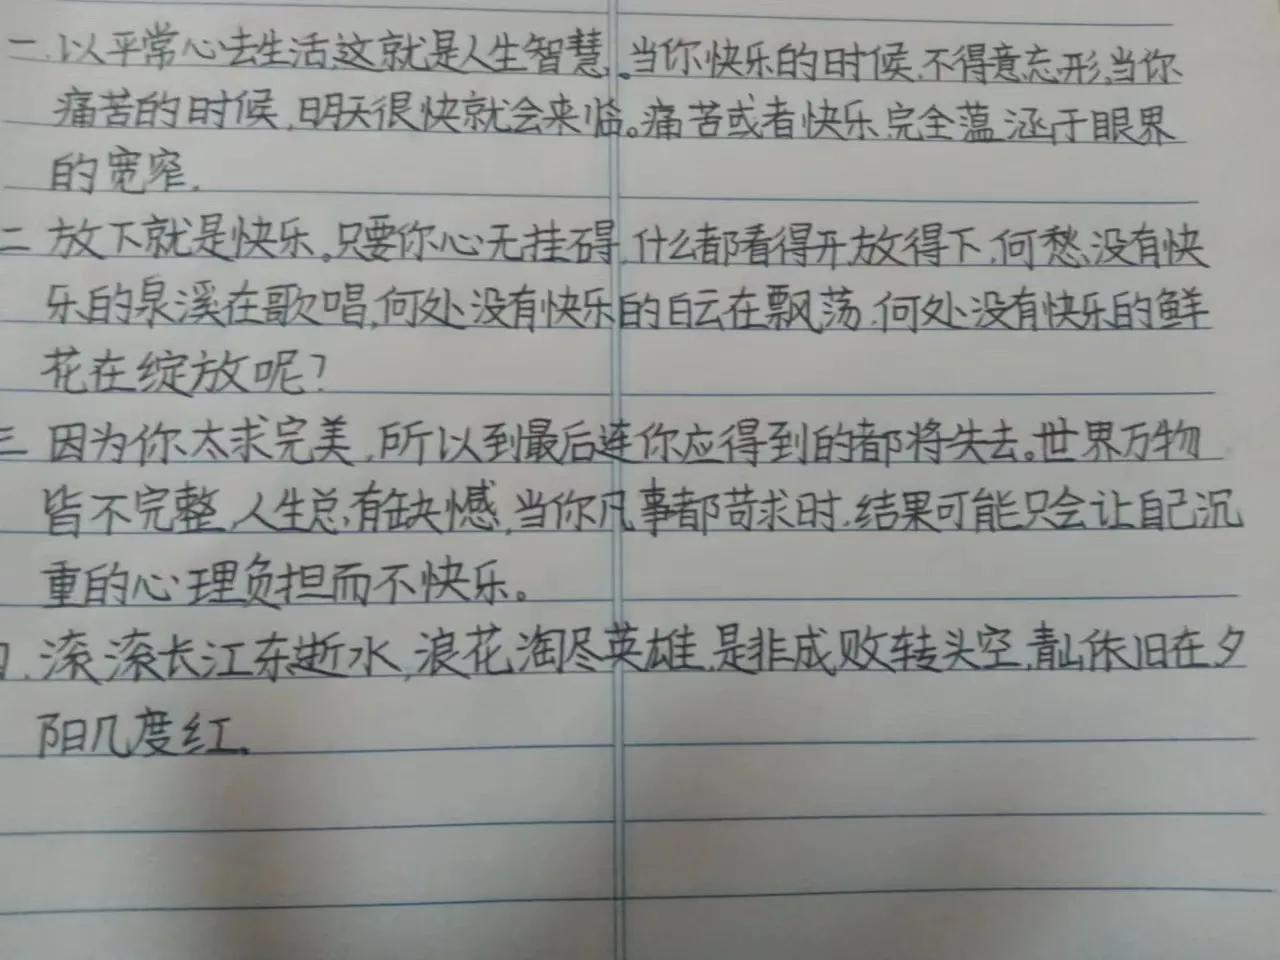 二.以平常心去生活,这就是人生智慧。当你快乐的时候,不得意忘形,当你
痛苦的时候,明天很快就会来临。痛苦或者快乐,完全蕴涵于眼界
的宽窄.
二 放下就是快乐。只要你心无挂碍,什么都看得开,放得下,何愁没有快
乐的泉溪在歌唱,何处没有快乐的白云在飘荡,何处没有快乐的鲜
花在绽放呢?
三 因为你太求完美,所以到最后连你应得到的都将失去。世界万物
皆不完整,人生总有缺憾,当你凡事都苛求时,结果可能只会让自己沉
重的心理负担而不快乐。
四.滚滚长江东逝水,浪花淘尽英雄,是非成败转头空,青山依旧在夕
阳几度红.